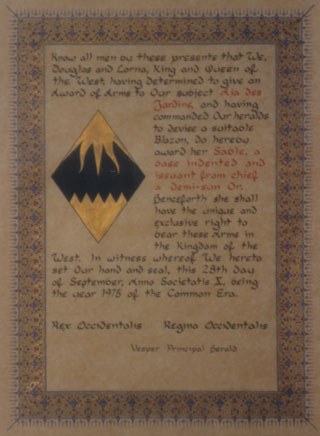 Know all men by these presents that We,
Douglas and Lorna, King and Queen of
the West, having determined to give an
Award of Arms to Our subject Lia des
Jardins, and having
commanded Our heralds
to devise a suitable
Blazon, do hereby
award her Sable, a
base indented and
issuant from chief
a demi-sun Or.
Henceforth she shall
have the unique and
exclusive right to
bear these Arms in
the Kingdom of the
West. In witness whereof We hereto
set Our hand and seal, this 28th day
of September, Anno Societatis X, being
the year 1975 of the Common Era.
Rex Occidentalis Regina Occidentalis
Vesper Principal Herald